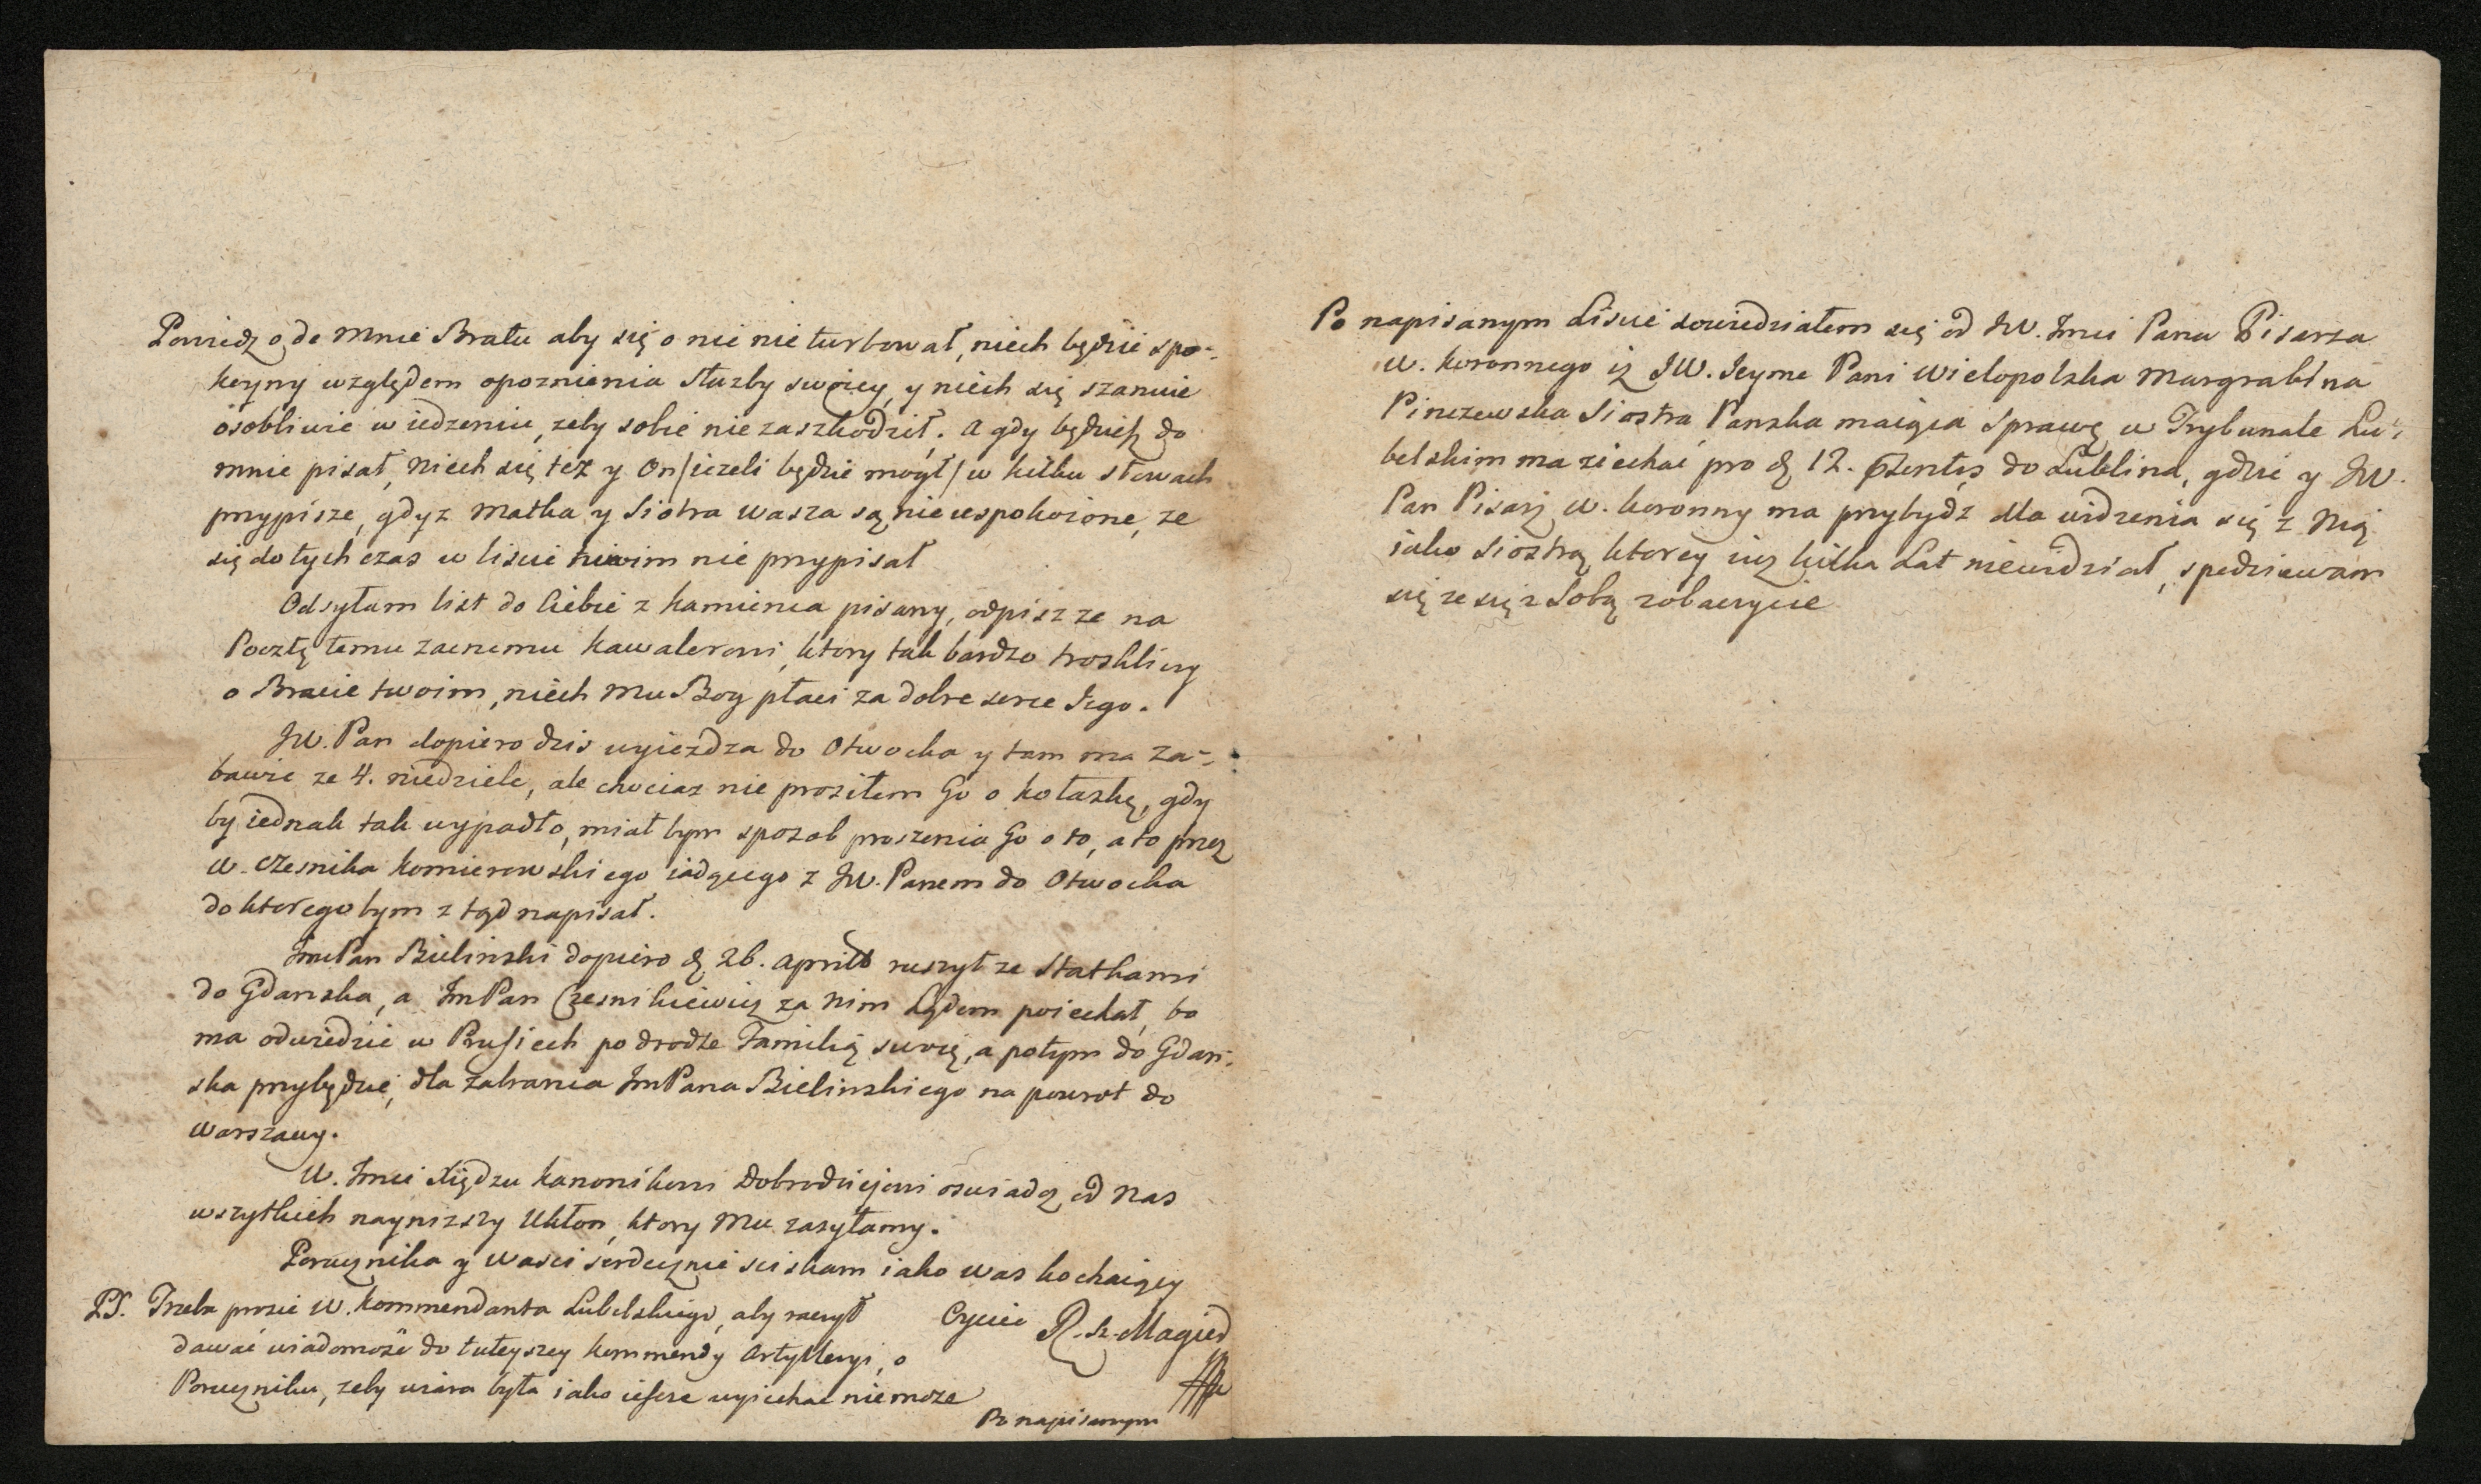 Powiedz o de mnie Bratu aby się o nic nie turbował, niech będzie spo-
koyny względem opoznienia służby swoiey, y niech się szanuie
osobliwie w iedzeniu, zeby sobie nie zaszkodził. A gdy będziesz do
mnie pisał, niech się tez y On /iezeli będzie mogł/ w kilku słowach
przypisze, gdyz Matka y Siostra wasza są nieuspokoione, ze
się dotychczas w liscie nie przypisał
Odsyłam list do Ciebie z Kamienca pisany, odpiszze na
Pocztę temu zacnemu Kawalerowi, ktory tak bardzo troskliwy
o Bracie twoim, niech Mu Bog płaci za dobre serce Iego.
JW. Pan dopiero dzis wyiezdza do Otwocka y tam ma za-
bawic ze 4. niedziele, ale chociaz nie prosiłem Go o Kolaskę, gdy
by iednak tak wypadło, miał bym sposob proszenia Go o to, a to przez
W. Czesnika Komierowskiego iadącego z JW. Panem do Otwocka
do ktorego bym z tąd napisał.
ImPan Bielinski dopiero d. 26. Aprilis ruszył ze Statkami
do Gdanska, a ImPan Czesnikiewicz za Nim Lądem poiechał, bo
ma odwiedzic w Prusiech po drodze Familią swoię, a potym do Gdan-
ska przybędzie, dla zabrania ImPana Bielinskiego na powrot do
Warszawy.
W. Imci Xiędzu Kanonikowi Dobrodziejowi oswiadcz od Nas
wszytkich nayniższy Ukłon, ktory Mu zasyłamy.
Porucznika y Wasci serdecznie sciskam iako was kochaiący
Oyciec R. Sz. Magier
PS. Trzeba prosic W. Kommendanta Lubelskiego, aby raczył
dawać wiadomość do tuteyszey Kommendy Artylleryi, o
Poruczniku, zeby wiara była iako ieszcze wyiechac nie moze
Po napisanym
Po napisanym Liscie dowiedziałem się od JW. Imci Pana Pisarza
W. Koronnego iz JW. Ieymc Pani Wielopolska Margrabina
Pinczewska Siostra Panska maiąca Sprawę w Trybunale Lu-
belskim ma ziechać pro d. 12. do Lublina, gdzie y JW.
Pan Pisarz W. Koronny ma przybydz dla widzenia się z Nią
iako Siostrą, ktorey iuz kilka Lat niewidział, spodziewam
się ze się z Sobą zobaczycie